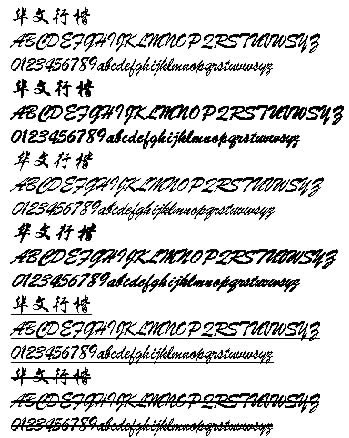 华文行楷
ABCDEFGHIJKLMNOPQRSTUVWXYZ
0123456789abcdefghijklmnopqrstuvwxyz
华文行楷
ABCDEFGHIJKLMNOPQRSTUVWXYZ
0123456789abcdefghijklmnopqrstuvwxyz
华文行楷
ABCDEFGHIJKLMNOPQRSTUVWXYZ
0123456789abcdefghijklmnopqrstuvwxyz
华文行楷
ABCDEFGHIJKLMNOPQRSTUVWXYZ
0123456789abcdefghijklmnopqrstuvwxyz
华文行楷
ABCDEFGHIJKLMNOPQRSTUVWXYZ
0123456789abcdefghijklmnopqrstuvwxyz
华文行楷
ABCDEFGHIJKLMNOPQRSTUVWXYZ
0123456789abcdefghijklmnopqrstuvwxyz